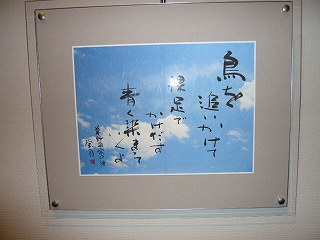 鳥を
追いかけて
裸足で
かけだす
青く染まって
いくよ